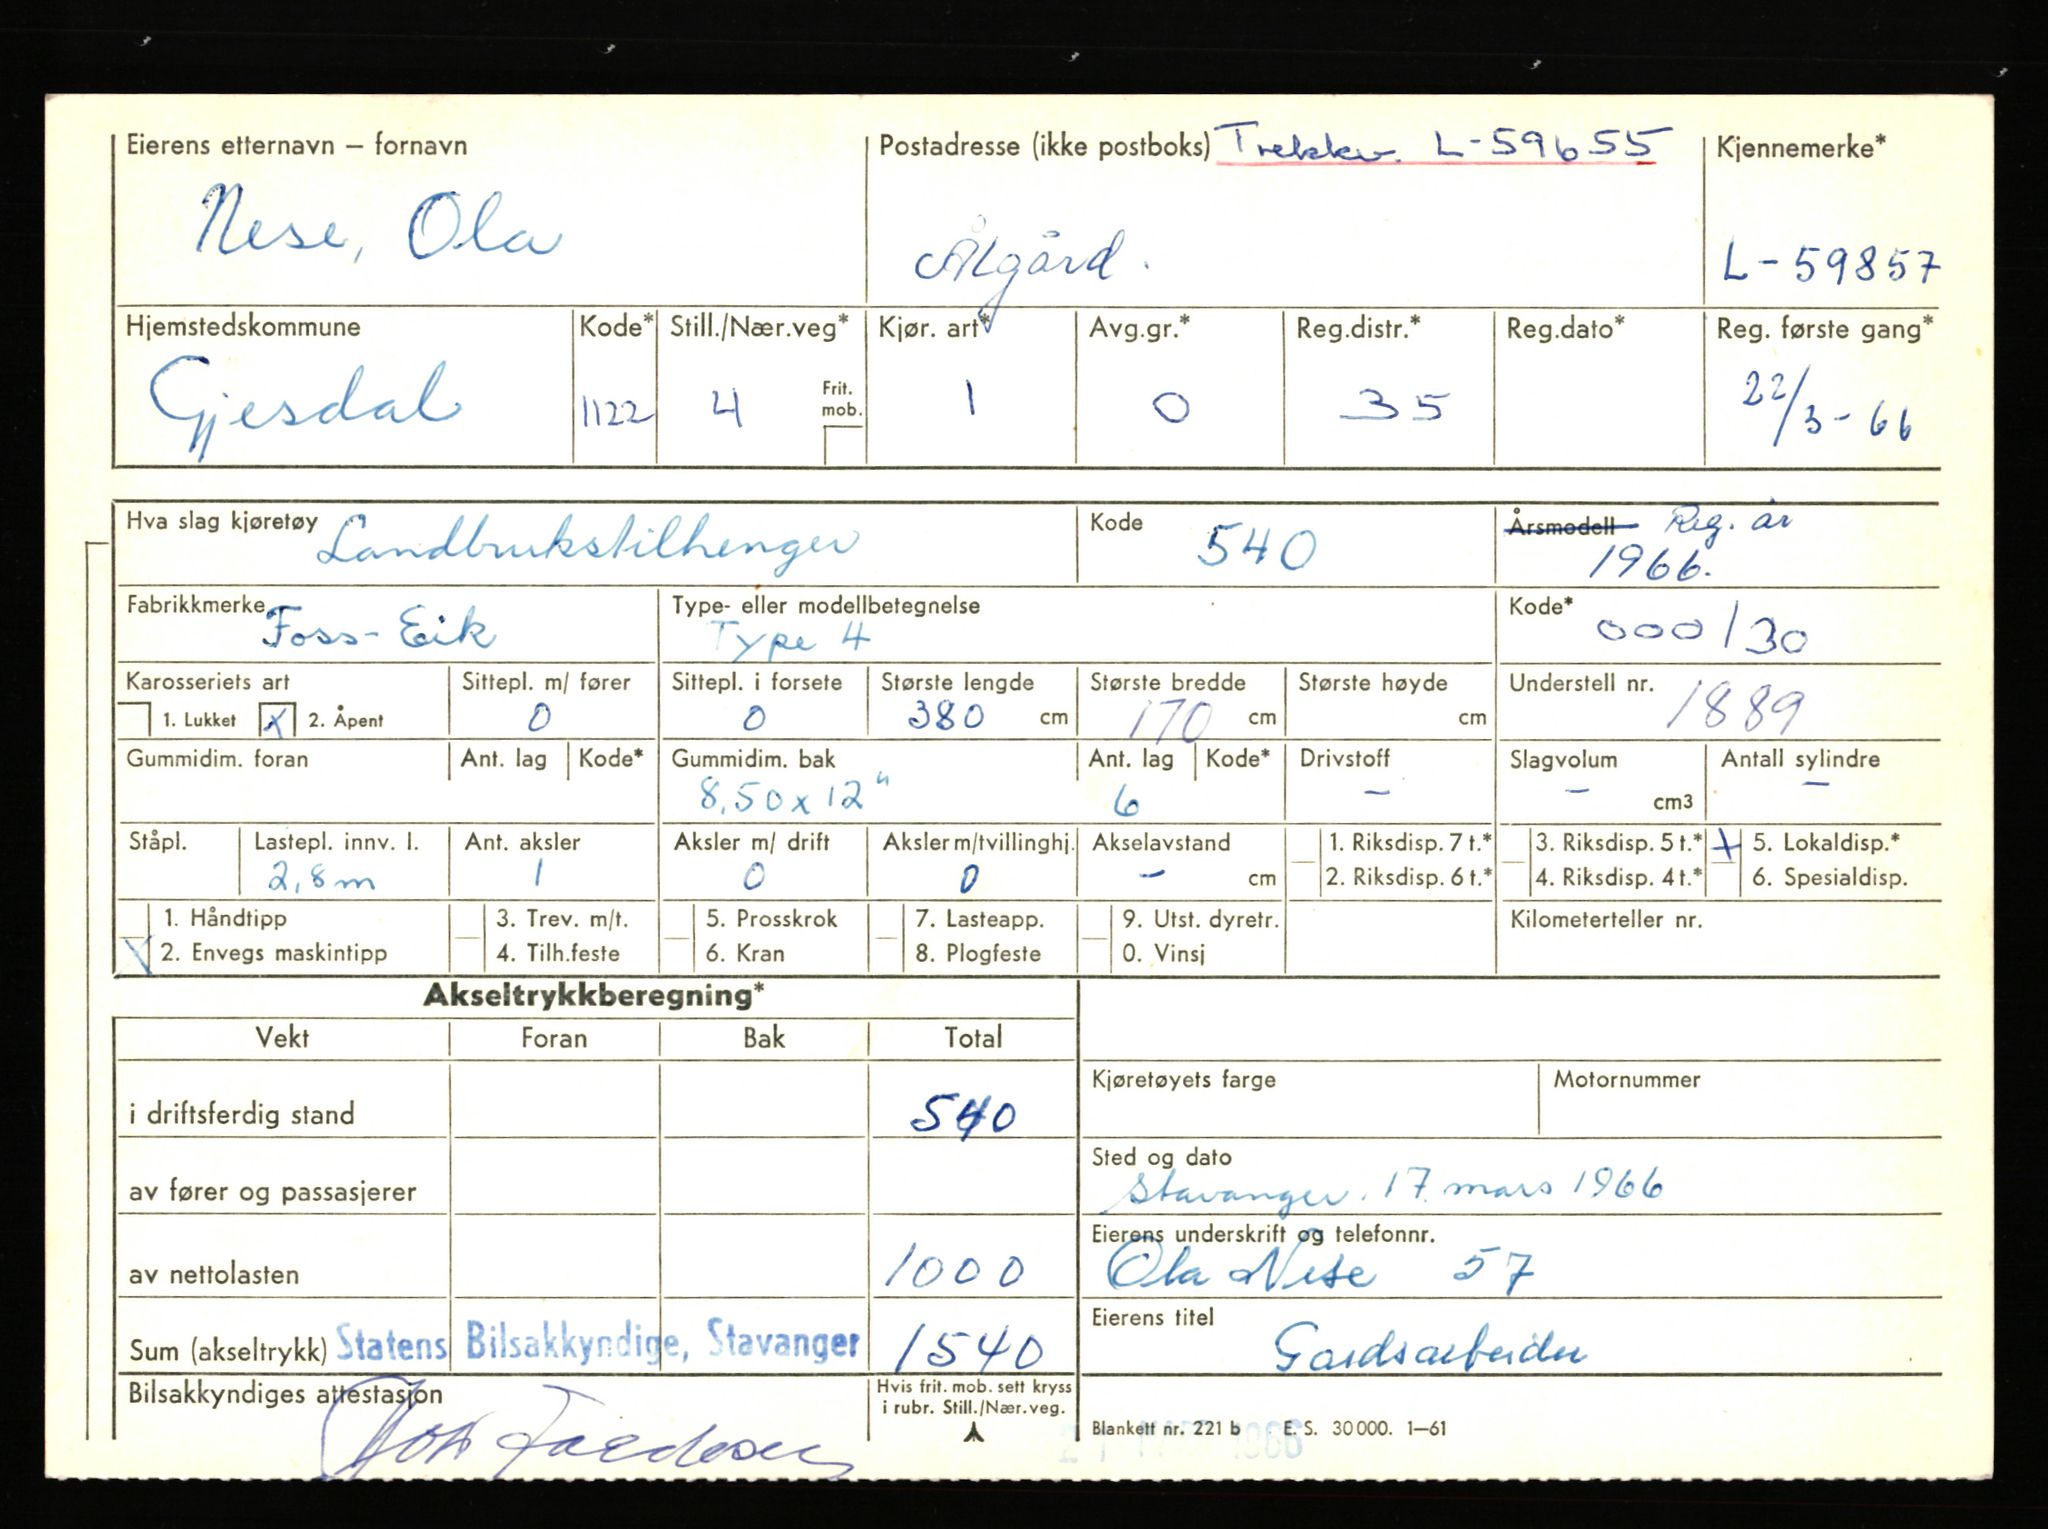 Eierens etternavn – fornavn
Postadresse (ikke postboks) Trekkv. L-59655
Kjennemerke*
Nese, Ola
Ålgård.
L-59857
Hjemstedskommune
Kode*
Still./Nær.veg*
Kjør. art*
Avg.gr.*
Reg.distr.*
Reg.dato*
Reg. første gang*
Gjesdal
1122
4
Frit. mob.
1
0
35
22/3-66
Hva slag kjøretøy Landbrukstilhenger
Kode 540
Årsmodell Reg. år
1966.
Fabrikkmerke Foss-Eik
Type- eller modellbetegnelse
Type 4
Kode* 000/30
Karosseriets art
Sittepl. m/ fører
Sittepl. i forsete
Største lengde
Største bredde
Største høyde
Understell nr. 1889
1. Lukket X 2. Åpent
0
0
380 cm
170 cm
cm
Gummidim. foran
Ant. lag
Kode*
Gummidim. bak
Ant. lag
Kode*
Drivstoff
Slagvolum
Antall sylindre
8,50 x 12"
6
-
- cm3
-
Ståpl.
Lastepl. innv. l.
Ant. aksler
Aksler m/ drift
Aksler m/tvillinghj.
Akselavstand
1. Riksdisp. 7 t.*
3. Riksdisp. 5 t.*
X 5. Lokaldisp.*
2,8 m
1
0
0
- cm
2. Riksdisp. 6 t.*
4. Riksdisp. 4 t.*
6. Spesialdisp.
1. Håndtipp
3. Trev. m/t.
5. Prosskrok
7. Lasteapp.
9. Utst. dyretr.
Kilometerteller nr.
X 2. Envegs maskintipp
4. Tilh.feste
6. Kran
8. Plogfeste
0. Vinsj
Akseltrykkberegning*
Vekt
Foran
Bak
Total
Kjøretøyets farge
Motornummer
i driftsferdig stand
540
Sted og dato
Stavanger. 17. mars 1966
av fører og passasjerer
Eierens underskrift og telefonnr.
Ola Nese 57
av nettolasten
1000
Eierens titel
Gardsarbeider
Sum (akseltrykk) Statens Bilsakkyndige, Stavanger 1540
Bilsakkyndiges attestasjon
Hvis frit. mob. sett kryss
i rubr. Still./Nær.veg.
Blankett nr. 221 b E. S. 30 000. 1–61
1966